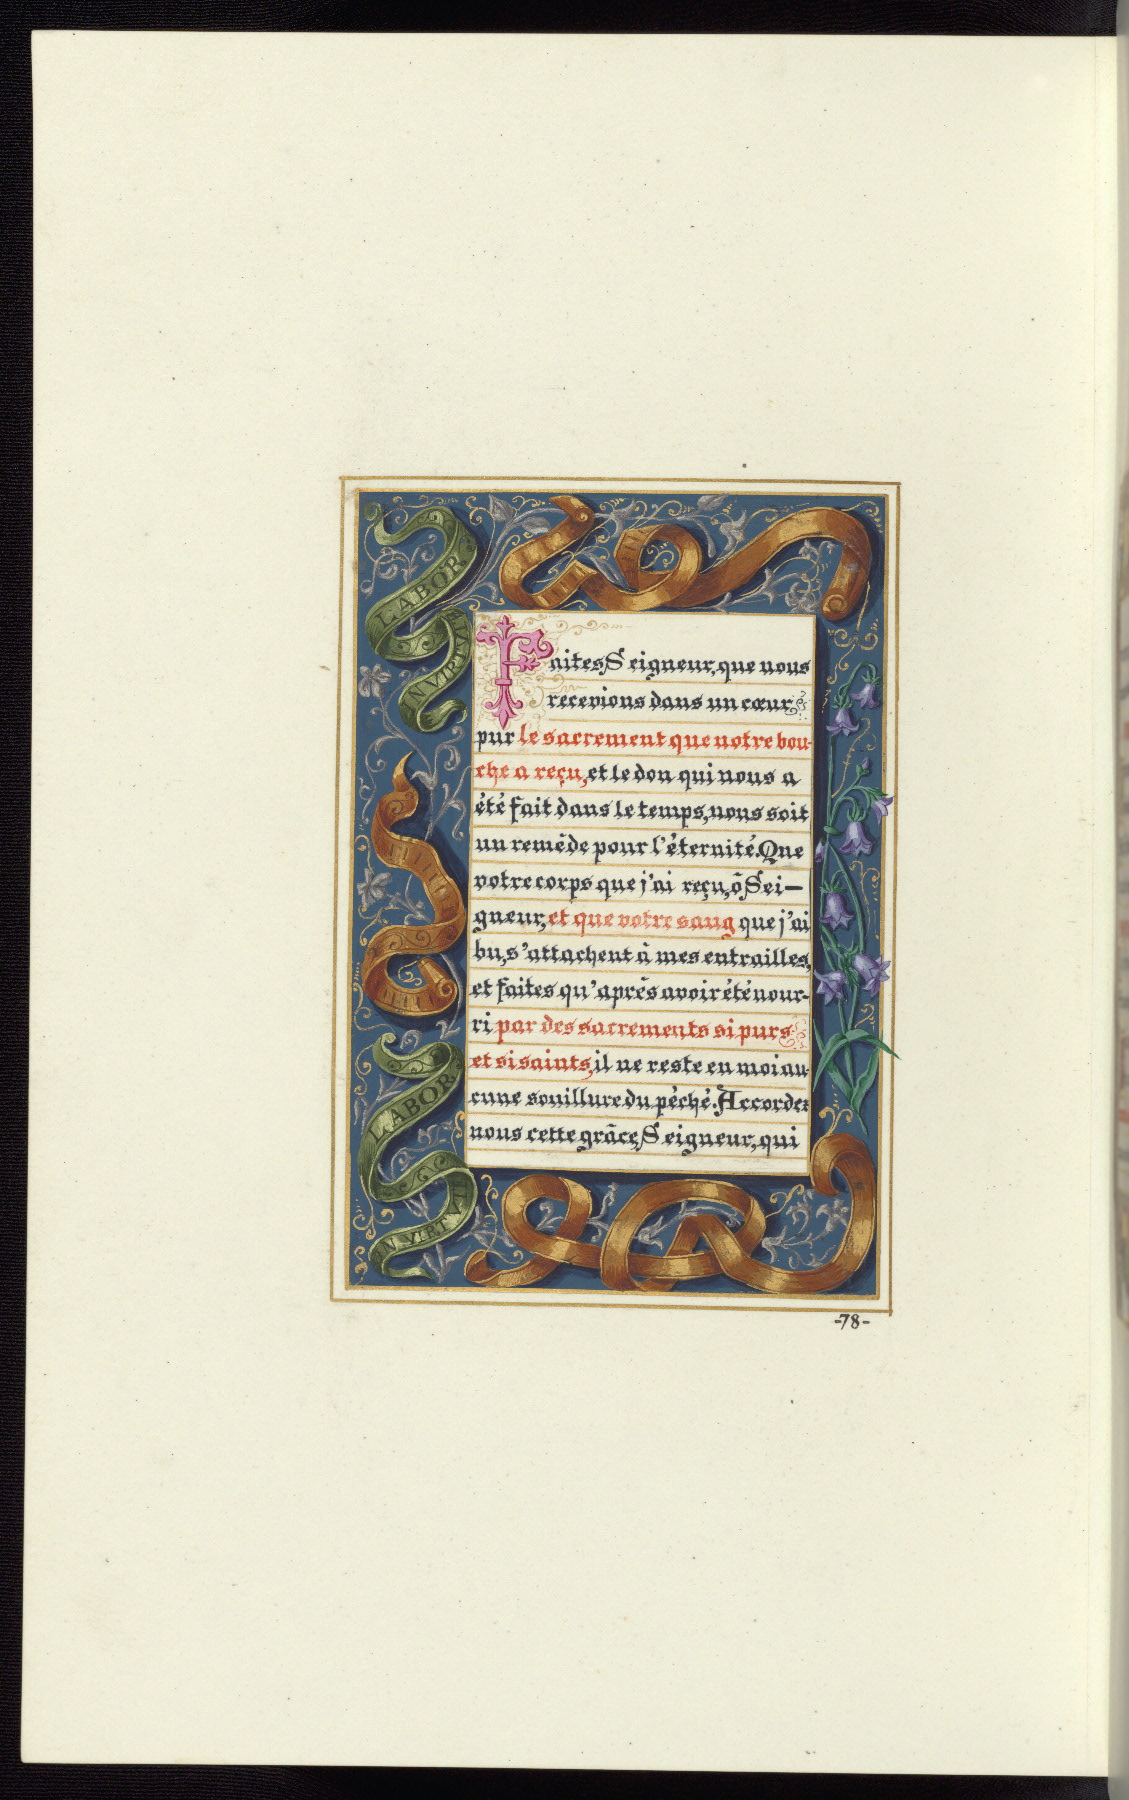 LABOR
IN VIRTV
Faites Seigneur, que nous
recevions dans un cœur
pur le sacrement que notre bou-
che a reçu, et le don qui nous a
été fait dans le temps, nous soit
un remède pour l'éternité. Que
votre corps que j'ai reçu, ô Sei-
gneur, et que votre sang que j'ai
bu, s'attachent à mes entrailles,
et faites qu'après avoir été nour-
ri par des sacrements si purs
et si saints, il ne reste en moi au-
cune souillure du péché. Accordez
nous cette grâce, Seigneur, qui
LABOR
IN VIRTVTE
-78-